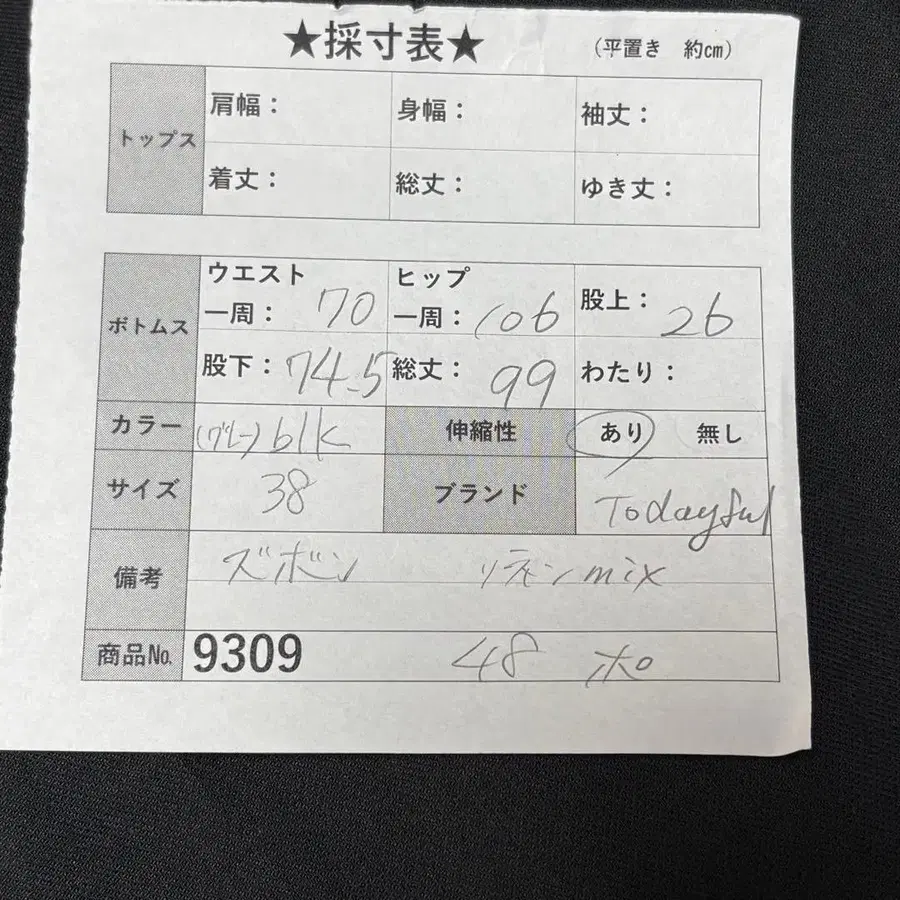 ★採寸表★ (平置き 約cm)
トップス
肩幅： 身幅： 袖丈：
着丈： 総丈： ゆき丈：
ボトムス
ウエスト一周： 70 ヒップ一周： 106 股上： 26
股下： 74.5 総丈： 99 わたり：
カラー (グレー) blk 伸縮性 あり 無し
サイズ 38 ブランド Todayful
備考 ズボン mix
商品No. 9309 48 ポ